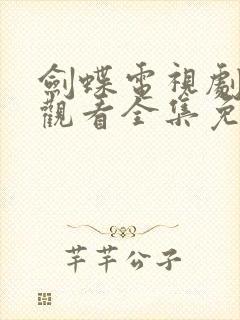 劍蝶電視劇
觀看全集免
芊芊公子